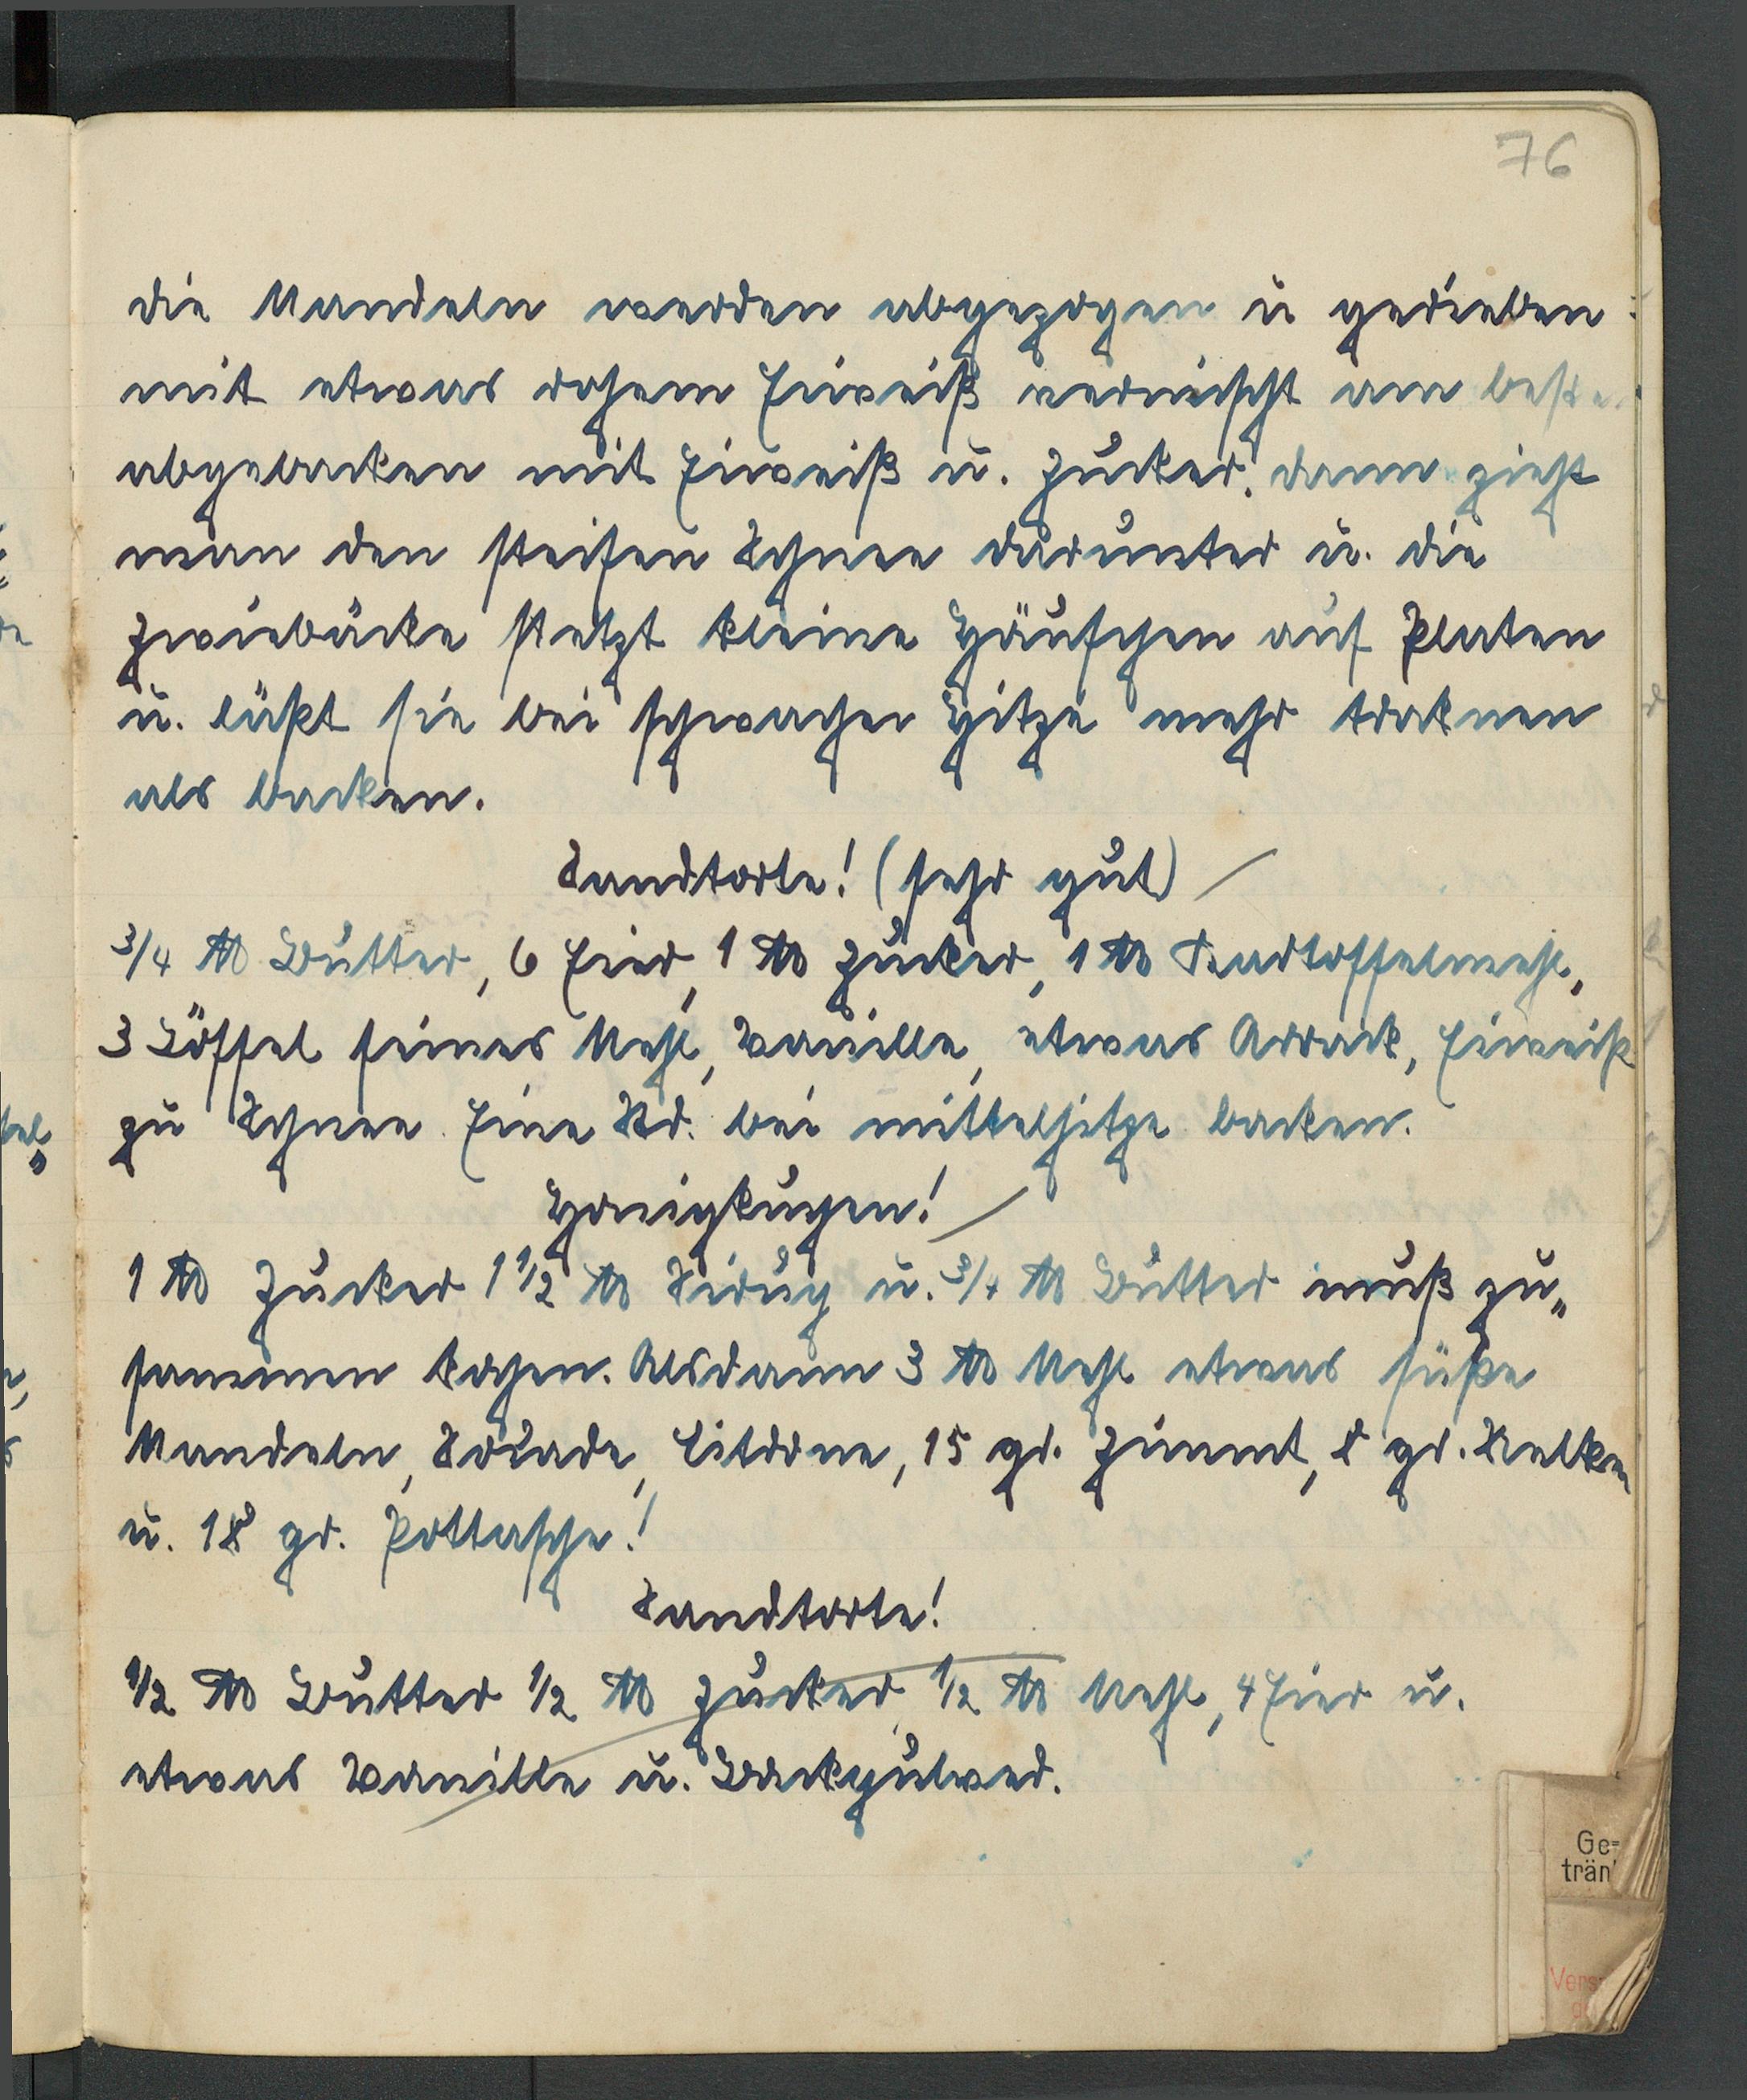 76
die Mandeln werden abgezogen u gerieben
mit etwas rohem Eiweiß vermischt am beste
abgebacken mit Eiweiß u. Zucker, dann zieht
man den steifen Schnee darunter u. die
Zwiebäcke stetzt kleine Häufchen auf Platen
u. läßt sie bei schwacher Hitze mehr troknen
als backen.
Sandtorte! (sehr gut)
3/4 ℔ Butter, 6 Eier, 1 ℔ Zucker, 1 ℔ Kartoffelmehl,
3 Löffel feines Mehl, Vanille, etwas Arrack, Eiweiß
zu Schnee. Eine Std. bei mittelhitze backen.
Honigkuchen!
1 ℔ Zucker 1 1/2 ℔ Sirup u. 3/4 ℔ Butter muß zu„
sammen kochen. Alsdann 3 ℔ Mehl etwas süße
Mandeln, Sucade, Citrone, 15 gr. Zimmt, 8 gr. Nelken
u. 18 gr. Pottasche!
Sandtorte!
1/2 ℔ Butter 1/2 ℔ Zucker, 1/2 ℔ Mehl, 4 Eier u.
etwas Vanille u. Backpulver.
Ge=
trän
Vers